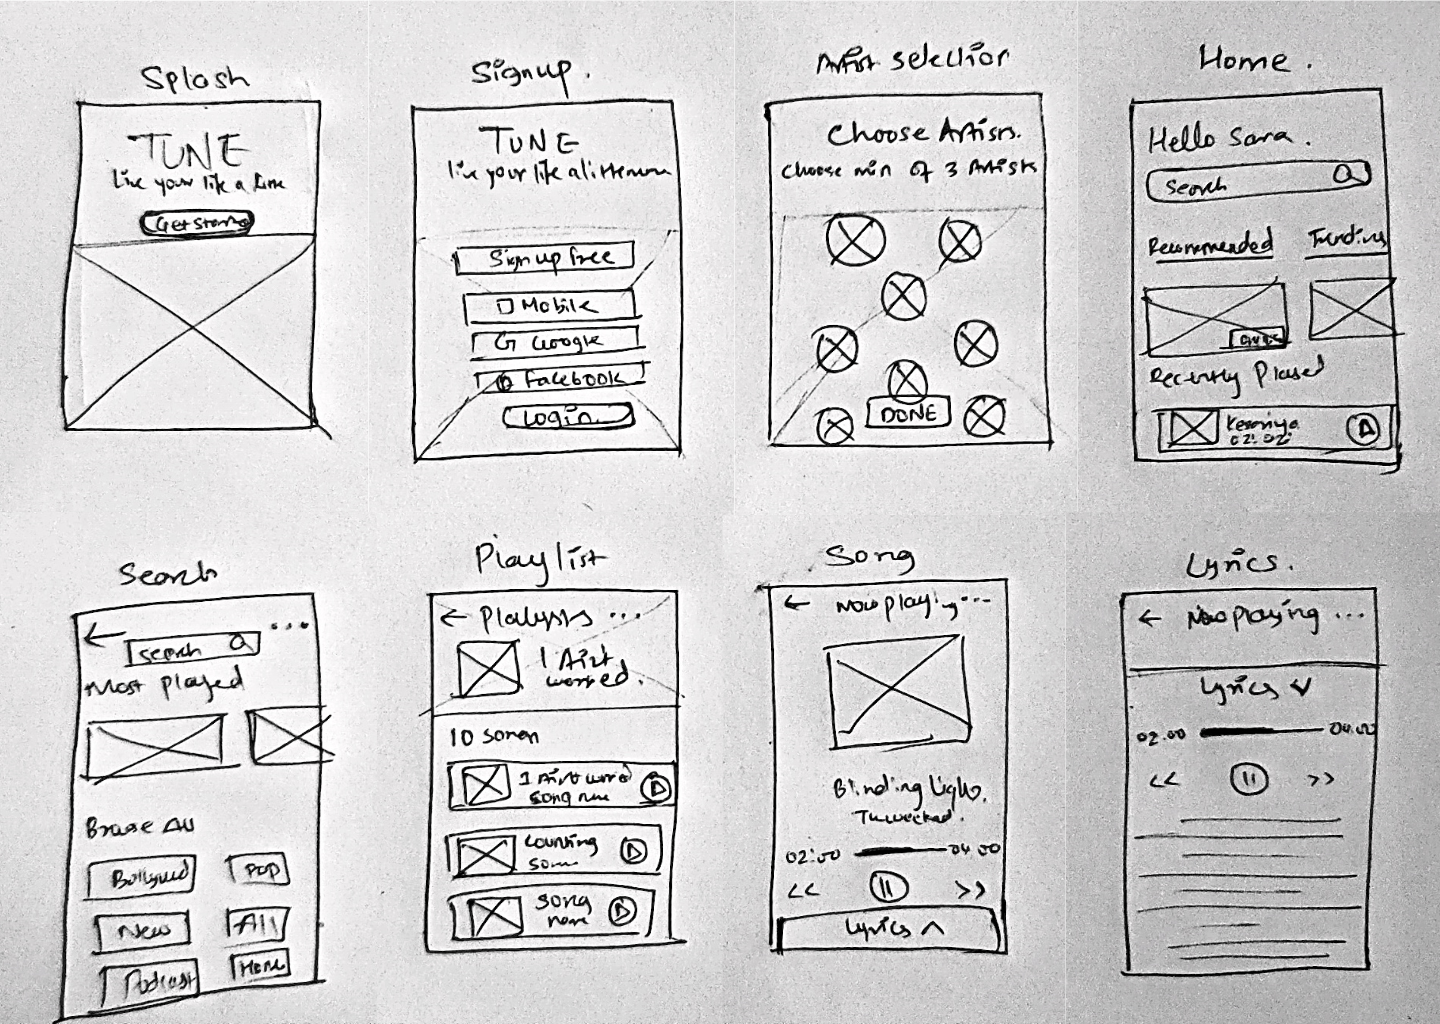 Splash
TUNE
Live your life a
Signup.
TUNE
live your life a
Signup free
Mobile
G Google
Facebook
Login
Artist selection
Choose Artists.
Choose min of 3 Artists
DONE
Home.
Hello Sara.
Search
Recommended
Trending
Recently Played
Kesariya
02:02
Search
...
search
Most Played
Browse All
Bollywood
Pop
New
All
Podcast
Playlist
← Playlists ...
1 Ain't
worried.
10 songs
1 Ain't worried
song name
Counting
song
name
Song
← Now playing ...
Blinding Lights.
02:00
04:00
<<
>>
Lyrics ^
Lyrics.
← Now playing ...
Lyrics
02:00
04:00
<<
>>